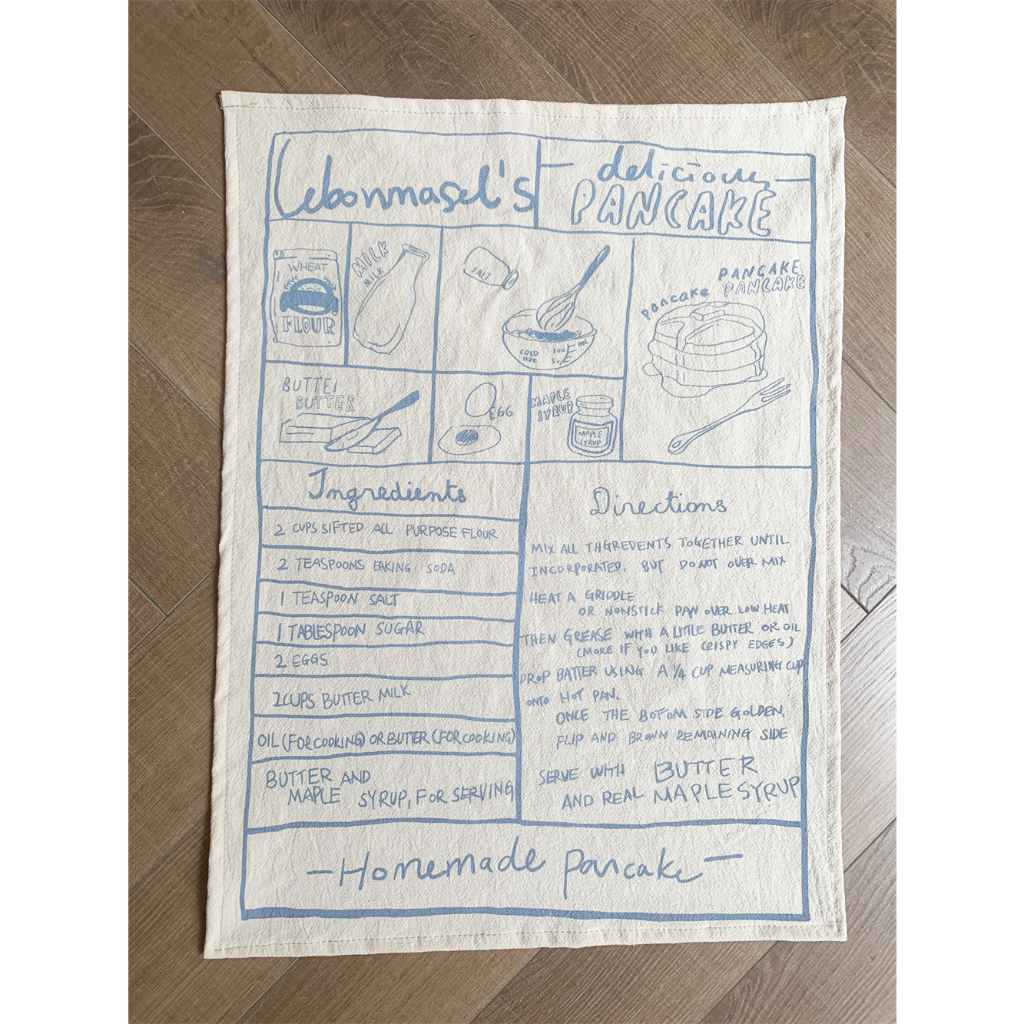 Lebonmasel's
delicious
PANCAKE
WHEAT
FLOUR
MILK
MILK
SALT
COLD
PANCAKE
PANCAKE
Pancake
BUTTE
BUTTER
EGG
MAPLE
SYRUP
MAPLE
SYRUP
Ingredients
2 CUPS SIFTED ALL PURPOSE FLOUR
2 TEASPOONS BAKING SODA
1 TEASPOON SALT
1 TABLESPOON SUGAR
2 EGGS
2 CUPS BUTTER MILK
OIL (FOR COOKING) OR BUTTER (FOR COOKING)
BUTTER AND
MAPLE SYRUP, FOR SERVING
Directions
MIX ALL THGREDENTS TOGETHER UNTIL
INCORPORATED. BUT DO NOT OVER MIX
HEAT A GRIDDLE
OR NONSTICK PAN OVER LOW HEAT
THEN GREASE WITH A LITTLE BUTTER OR OIL
(MORE IF YOU LIKE CRISPY EDGES)
DROP BATTER USING A ¼ CUP MEASURING CUP
ONTO HOT PAN.
ONCE THE BOTTOM SIDE GOLDEN,
FLIP AND BROWN REMAINING SIDE
SERVE WITH BUTTER
AND REAL MAPLE SYRUP
—Homemade pancake—